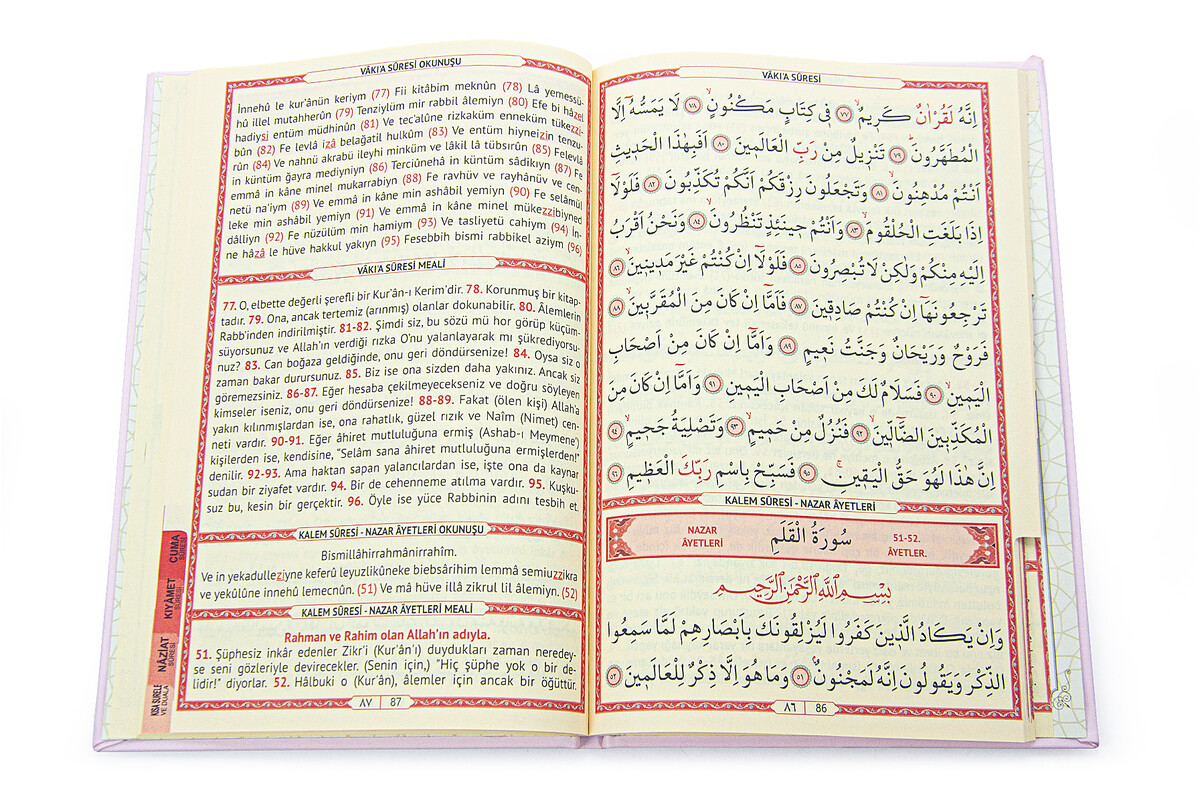 VÂKI'A SÛRESİ OKUNUŞU
İnnehû le kur'ânün keriym (77) Fii kitâbim meknûn (78) Lâ yemessü-
hû illel mutahherûn (79) Tenziylüm mir rabbil âlemiyn (80) Efe bi hâzel
hadiysi entüm müdhinûn (81) Ve tec'alûne rizkaküm enneküm tükezzi-
bûn (82) Fe levlâ izâ belağatil hulkûm (83) Ve entüm hiyneizin tenzu-
rûn (84) Ve nahnü akrabü ileyhi minküm ve lâkil lâ tübsırûn (85) Felevlâ
in küntüm ğayra mediyniyn (86) Terciûnehâ in küntüm sâdikıyn (87) Fe
emmâ in kâne minel mukarrabiyn (88) Fe ravhüv ve rayhânüv ve cen-
netü na'iym (89) Ve emmâ in kâne min ashâbil yemiyn (90) Fe selâmül
leke min ashâbil yemiyn (91) Ve emmâ in kâne minel mükezzibiyned
dâlliyn (92) Fe nüzülüm min hamiym (93) Ve tasliyetü cahiym (94) İn-
ne hâzâ le hüve hakkul yakıyn (95) Fesebbih bismi rabbikel aziym (96)
VÂKI'A SÛRESİ MEALİ
77. O, elbette değerli şerefli bir Kur'ân-ı Kerim'dir. 78. Korunmuş bir kitap-
tadır. 79. Ona, ancak tertemiz (arınmış) olanlar dokunabilir. 80. Âlemlerin
Rabb'inden indirilmiştir. 81-82. Şimdi siz, bu sözü mü hor görüp küçüm-
süyorsunuz ve Allah'ın verdiği rızka O'nu yalanlayarak mı şükrediyorsu-
nuz? 83. Can boğaza geldiğinde, onu geri döndürsenize! 84. Oysa siz o
zaman bakar durursunuz. 85. Biz ise ona sizden daha yakınız. Ancak siz
göremezsiniz. 86-87. Eğer hesaba çekilmeyecekseniz ve doğru söyleyen
kimseler iseniz, onu geri döndürsenize! 88-89. Fakat (ölen kişi) Allah'a
yakın kılınmışlardan ise, ona rahatlık, güzel rızık ve Naîm (Nimet) cen-
neti vardır. 90-91. Eğer âhiret mutluluğuna ermiş (Ashab-ı Meymene')
kişilerden ise, kendisine, "Selâm sana âhiret mutluluğuna ermişlerden!"
denilir. 92-93. Ama haktan sapan yalancılardan ise, işte ona da kaynar
sudan bir ziyafet vardır. 94. Bir de cehenneme atılma vardır. 95. Kuşku-
suz bu, kesin bir gerçektir. 96. Öyle ise yüce Rabbinin adını tesbih et.
KALEM SÛRESİ - NAZAR ÂYETLERİ OKUNUŞU
Bismillâhirrahmânirrahîm.
Ve in yekadulleziyne keferû leyuzlikûneke biebsârihim lemmâ semiuzzikra
ve yekûlûne innehû lemecnûn. (51) Ve mâ hüve illâ zikrul lil âlemiyn. (52)
KALEM SÛRESİ - NAZAR ÂYETLERİ MEALİ
Rahman ve Rahim olan Allah'ın adıyla.
51. Şüphesiz inkâr edenler Zikr'i (Kur'ân'ı) duydukları zaman neredey-
se seni gözleriyle devirecekler. (Senin için,) "Hiç şüphe yok o bir de-
lidir!" diyorlar. 52. Hâlbuki o (Kur'ân), âlemler için ancak bir öğüttür.
٨٧ 87
CUMA SÛRESİ
KIYÂMET SÛRESİ
NÂZİAT SÛRESİ
KISA SÛRELER
VE DUALAR
VÂKI'A SÛRESİ
اِنَّهُ لَقُرْاٰنٌ كَر۪يمٌۙ ﴿٧٧﴾ ف۪ي كِتَابٍ مَكْنُونٍۙ ﴿٧٨﴾ لَا يَمَسُّهُٓ اِلَّا
الْمُطَهَّرُونَۜ ﴿٧٩﴾ تَنْز۪يلٌ مِنْ رَبِّ الْعَالَم۪ينَ ﴿٨٠﴾ اَفَبِهٰذَا الْحَد۪يثِ
اَنْتُمْ مُدْهِنُونَۙ ﴿٨١﴾ وَتَجْعَلُونَ رِزْقَكُمْ اَنَّكُمْ تُكَذِّبُونَ ﴿٨٢﴾ فَلَوْلَٓا
اِذَا بَلَغَتِ الْحُلْقُومَۙ ﴿٨٣﴾ وَاَنْتُمْ ح۪ينَئِذٍ تَنْظُرُونَۙ ﴿٨٤﴾ وَنَحْنُ اَقْرَبُ
اِلَيْهِ مِنْكُمْ وَلٰكِنْ لَا تُبْصِرُونَ ﴿٨٥﴾ فَلَوْلَٓا اِنْ كُنْتُمْ غَيْرَ مَد۪ين۪ينَۙ ﴿٨٦﴾
تَرْجِعُونَهَٓا اِنْ كُنْتُمْ صَادِق۪ينَ ﴿٨٧﴾ فَاَمَّٓا اِنْ كَانَ مِنَ الْمُقَرَّب۪ينَۙ ﴿٨٨﴾
فَرَوْحٌ وَرَيْحَانٌ وَجَنَّتُ نَع۪يمٍ ﴿٨٩﴾ وَاَمَّٓا اِنْ كَانَ مِنْ اَصْحَابِ
الْيَم۪ينِۙ ﴿٩٠﴾ فَسَلَامٌ لَكَ مِنْ اَصْحَابِ الْيَم۪ينِ ﴿٩١﴾ وَاَمَّٓا اِنْ كَانَ مِنَ
الْمُكَذِّب۪ينَ الضَّٓالّ۪ينَۙ ﴿٩٢﴾ فَنُزُلٌ مِنْ حَم۪يمٍۙ ﴿٩٣﴾ وَتَصْلِيَةُ جَح۪يمٍ ﴿٩٤﴾
اِنَّ هٰذَا لَهُوَ حَقُّ الْيَق۪ينِۚ ﴿٩٥﴾ فَسَبِّحْ بِاسْمِ رَبِّكَ الْعَظ۪يمِ ﴿٩٦﴾
KALEM SÛRESİ - NAZAR ÂYETLERİ
NAZAR ÂYETLERİ سُورَةُ الْقَلَمِ 51-52. ÂYETLER.
بِسْمِ اللّٰهِ الرَّحْمٰنِ الرَّح۪يمِ
وَاِنْ يَكَادُ الَّذ۪ينَ كَفَرُوا لَيُزْلِقُونَكَ بِاَبْصَارِهِمْ لَمَّا سَمِعُوا
الذِّكْرَ وَيَقُولُونَ اِنَّهُ لَمَجْنُونٌۢ ﴿٥١﴾ وَمَا هُوَ اِلَّا ذِكْرٌ لِلْعَالَم۪ينَ ﴿٥٢﴾
٨٦ 86